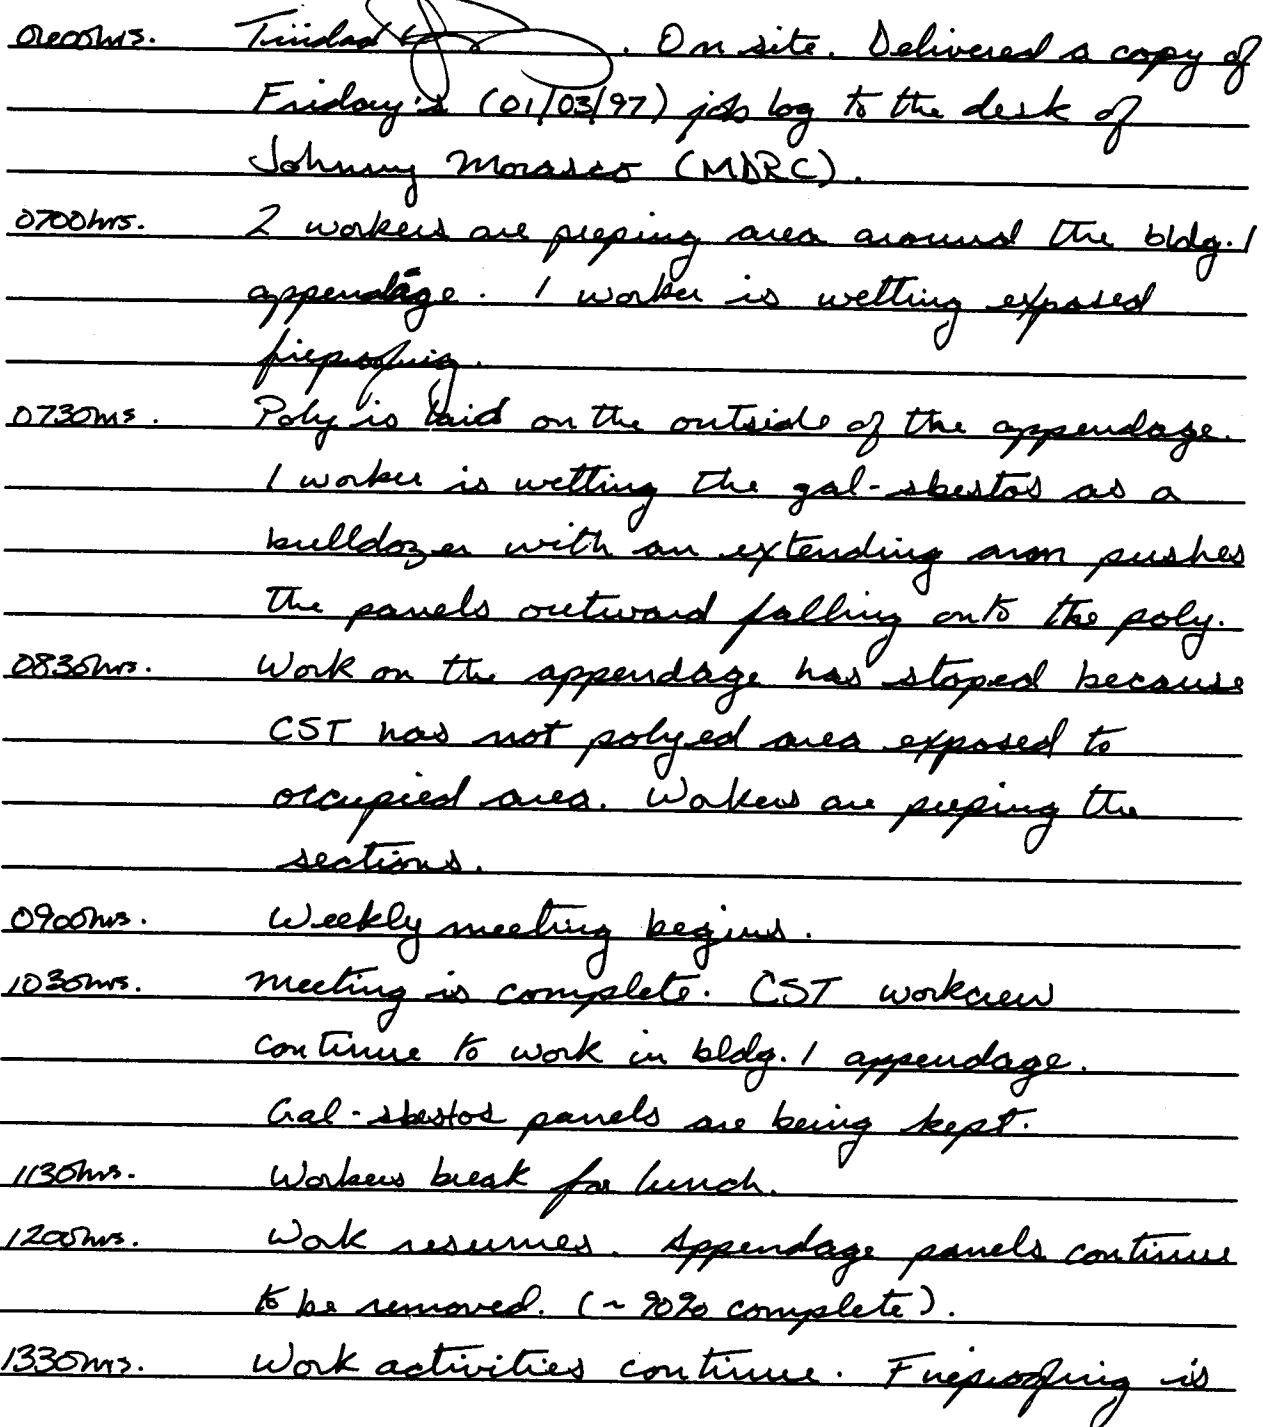 0600hrs. Trinidad . On site. Delivered a copy of
Friday's (01/03/97) job log to the desk of
Johnny Morasco (MDRC).
0700hrs. 2 workers are preping area around the bldg. 1
appendage. 1 worker is wetting exposed
fireproofing.
0730hrs. Poly is laid on the outside of the appendage.
1 worker is wetting the gal-sbestos as a
bulldozer with an extending arm pushes
the panels outward falling onto the poly.
0830hrs. Work on the appendage has stoped because
CST has not polyed area exposed to
occupied area. Workers are preping the
sections.
0900hrs. Weekly meeting begins.
1030hrs. Meeting is complete. CST workcrew
continue to work in bldg. 1 appendage.
Gal-sbestos panels are being kept.
1130hrs. Workers break for lunch.
1200hrs. Work resumes. Appendage panels continue
to be removed. (~90% complete).
1330hrs. Work activities continue. Fireproofing is